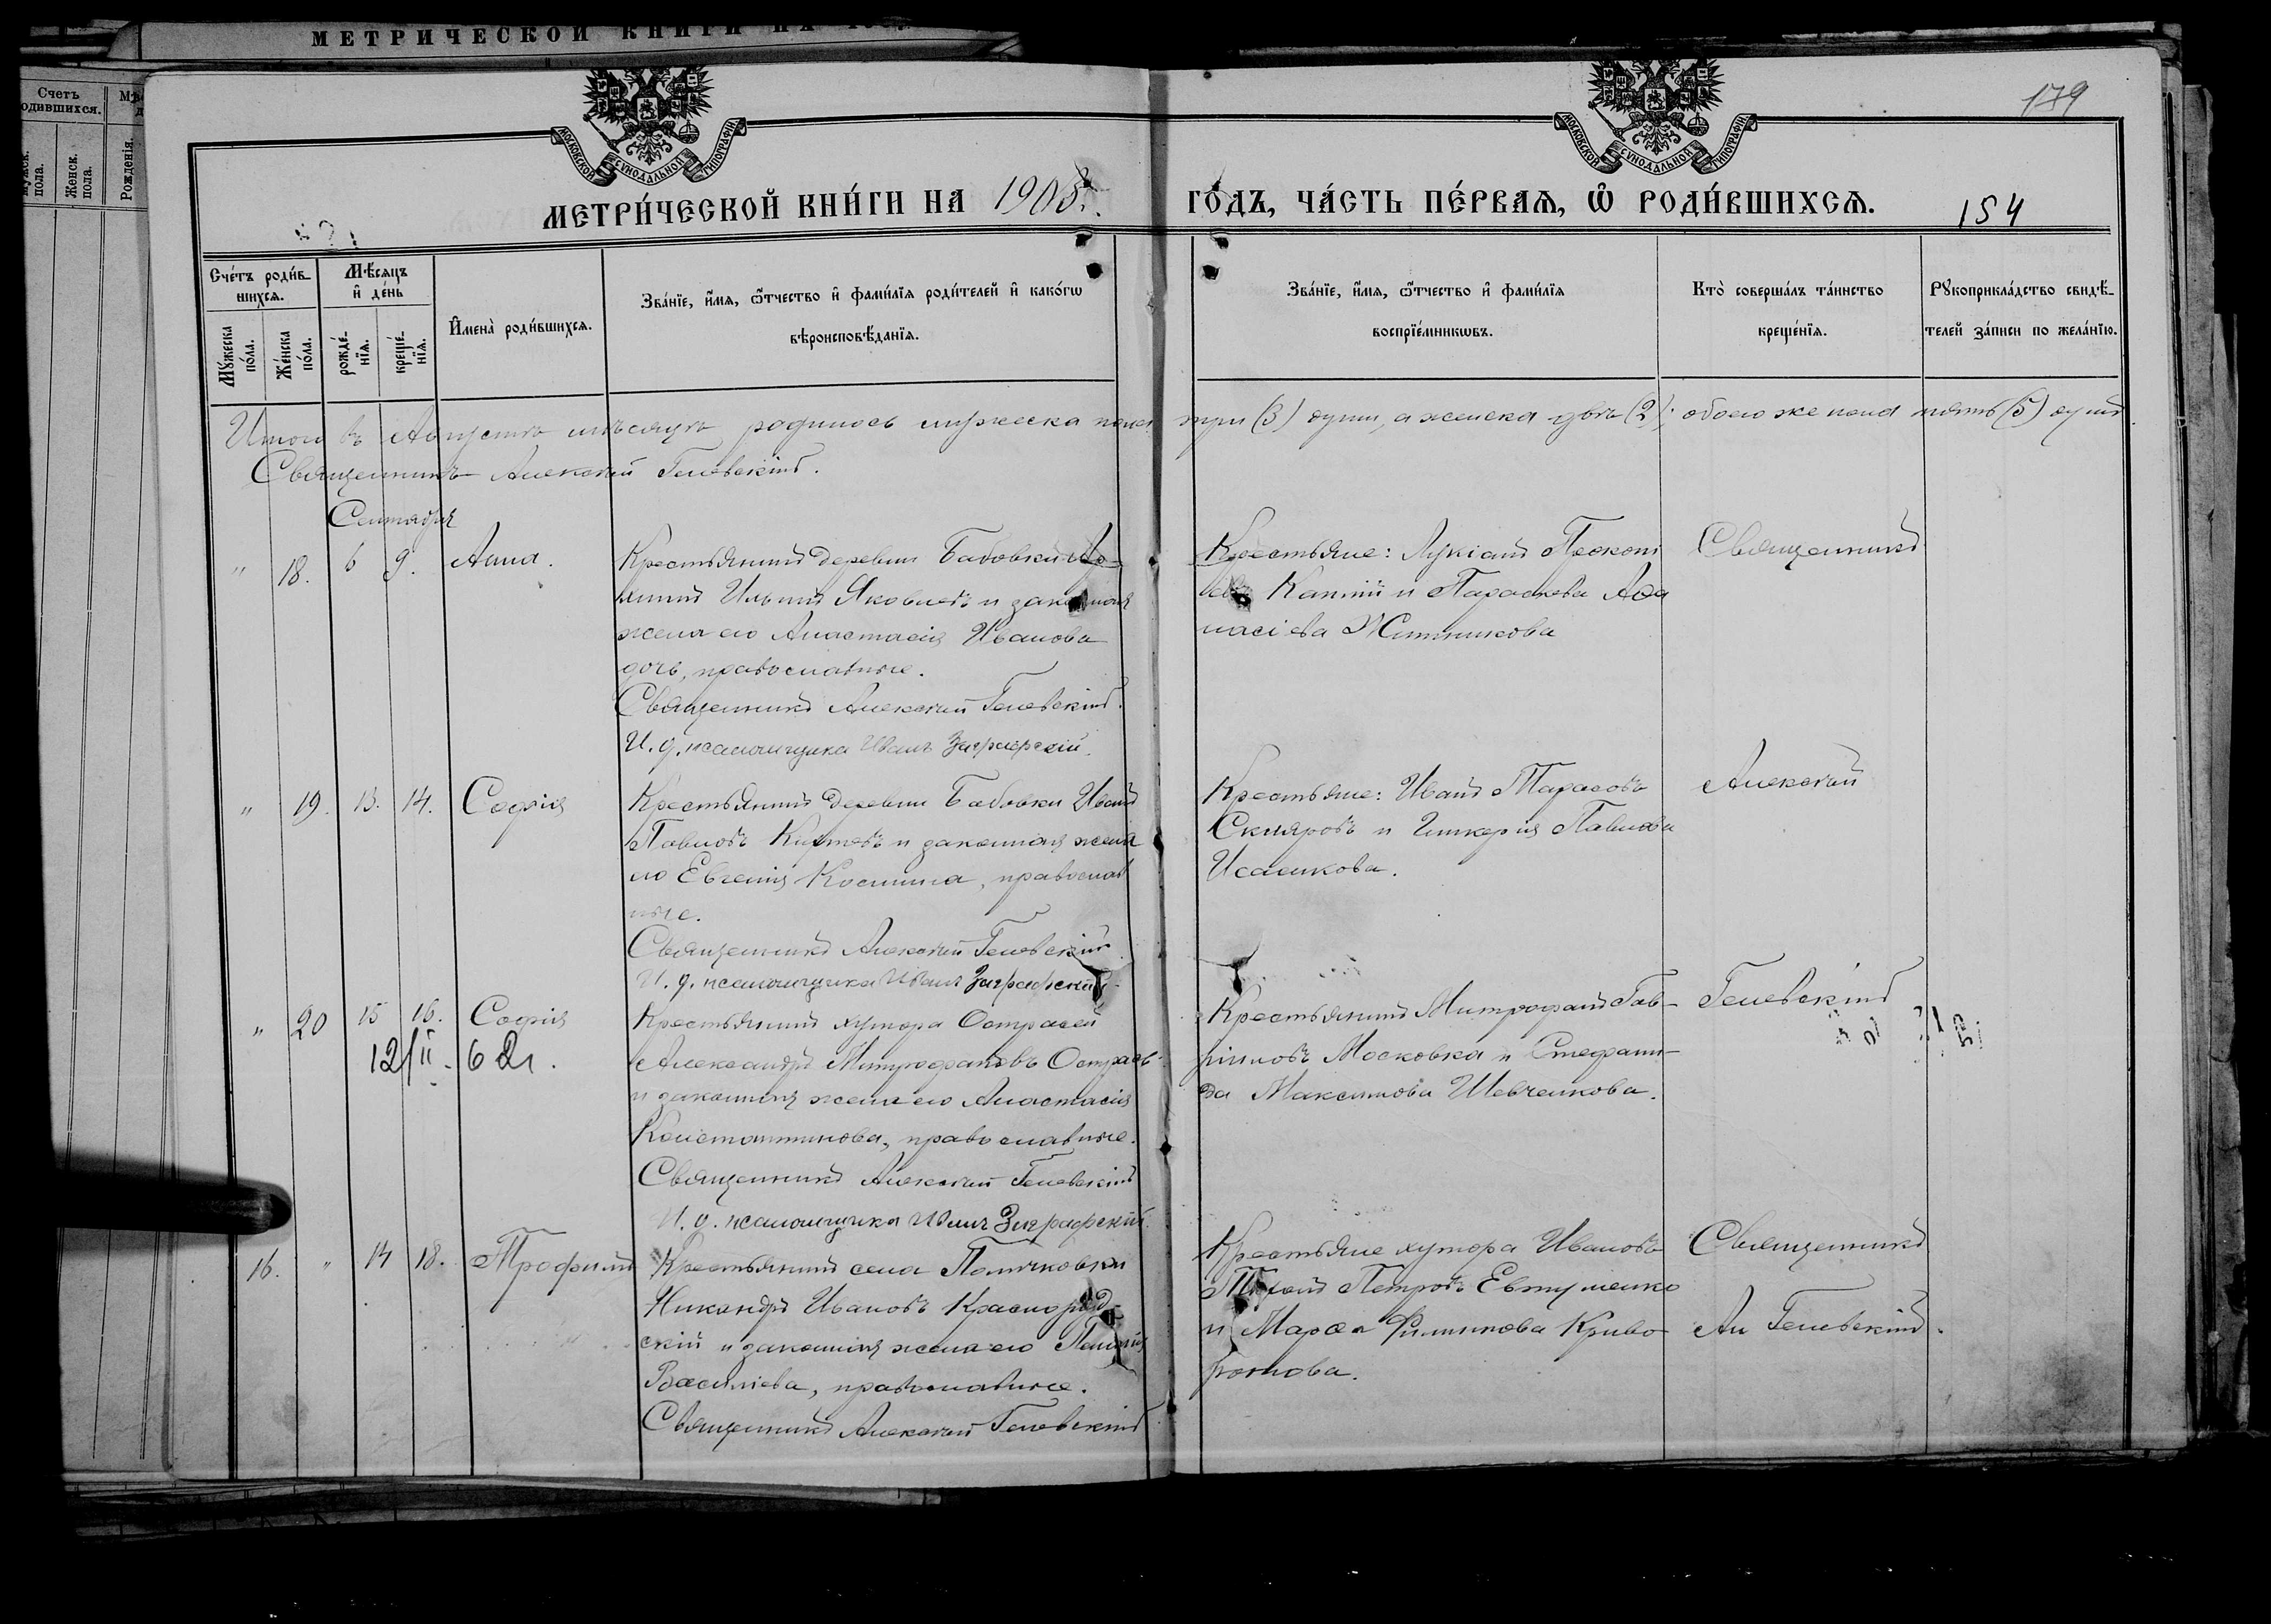 МЕТРИЧЕСКОЙ КНИГИ НА
Счетъ
одившихся.
Женск.
пола.
Рожденія.
МОСКОВСКОЙ СѴНОДАЛЬНОЙ ТИПОГРАФІИ
МОСКОВСКОЙ СѴНОДАЛЬНОЙ ТИПОГРАФІИ
179
МЕТРИ́ЧЕСКОЙ КНИ́ГИ НА 1903. ГО́ДЪ, ЧА́СТЬ ПЕ́РВАѦ, Ѡ҆ РОДИ́ВШИХСѦ. 154
Сче́тъ роди́в-
шихсѧ.
Мꙋ́жеска по́ла.
Же́нска по́ла.
Мѣ́сѧцъ
и҆ де́нь
рожде́-
нїѧ.
креще́-
нїѧ.
И҆мена̀ роди́вшихсѧ.
Зва́нїе, и҆́мѧ, ѻ҆́тчество и҆ фами́лїѧ роди́телей и҆ како́гѡ
вѣроисповѣ́данїѧ.
Зва́нїе, и҆́мѧ, ѻ҆́тчество и҆ фами́лїѧ
воспрїе́мникѡвъ.
Кто̀ соверша́лъ та́инство
креще́нїѧ.
Рꙋкоприкла́дство свидѣ́-
телей за́писи по жела́нїю.
Итого въ Августѣ мѣсяцѣ родилось мужеска пола три (3) души, а женска двѣ (2); обоего же пола пять (5) душъ
Священникъ Алексій Гелевскій.
Сентябрь
" 18. 6 9. Анна.
Крестьянинъ деревни Бабовки
Ильинъ Яковлевъ и законная
жена его Анастасія Иванова
дочь, православные.
Священникъ Алексій Гелевскій.
И. д. псаломщика Иванъ Заграфскій.
Крестьяне: Лукіанъ Прокопі
евъ и Параскева Афа
насіева Житникова
Священникъ
" 19. 13. 14. Софія
Крестьянинъ деревни Бабовки Иванъ
Павловъ и законная жена
его Евгенія Космина, православ
ные.
Священникъ Алексій Гелевскій.
И. д. псаломщика Иванъ Заграфскій.
Крестьяне: Иванъ Тарасовъ
Скляровъ и Гликерія Павлова
Исаенкова.
Алексій
" 20 15 16. Софія
12/II - 62 г.
Крестьянинъ хутора Острасей
Александръ Митрофановъ Острась
и законная жена его Анастасія
Константинова, православные.
Священникъ Алексій Гелевскій
И. д. псаломщика Иванъ Заграфскій.
Крестьянинъ Митрофанъ Гав-
рииловъ Московка и Стефани-
да Максимова Шевченкова.
Гелевскій
16. " 14 18. Трофимъ
Крестьянинъ села Полтавки
Никандръ Ивановъ Красноград-
скій и законная жена его
Василіева, православные.
Священникъ Алексій Гелевскій
Крестьяне хутора Ивановъ
Петровъ Евтушенко
и Марѳа Филипова Криво
ротова.
Священникъ
Ал Гелевскій.